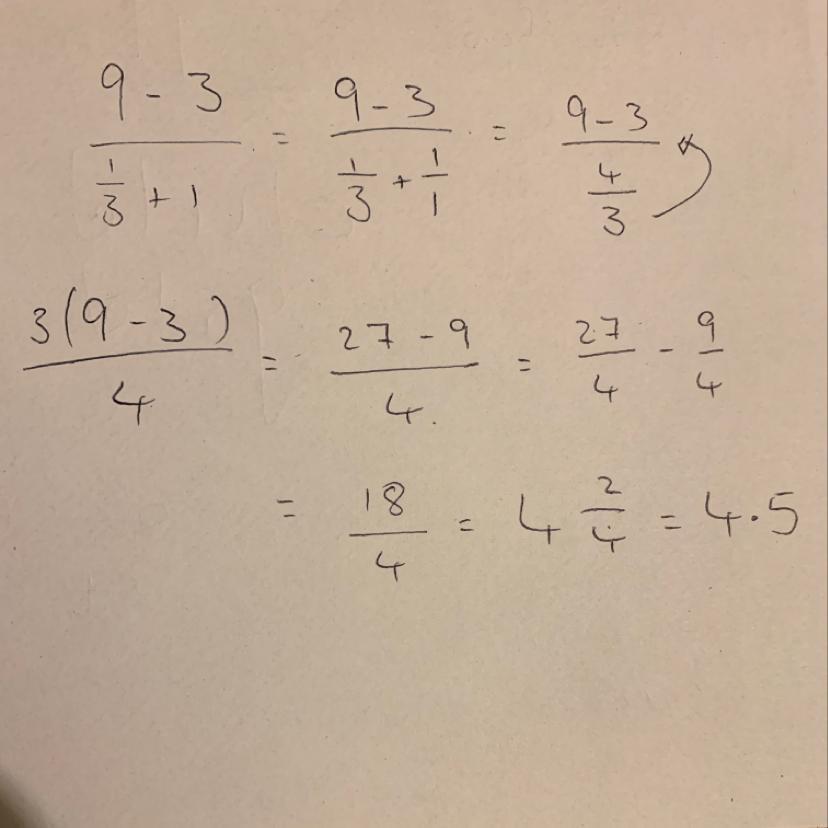 (9 - 3)/(1/3 + 1) = (9 - 3)/(1/3 + 1/1) = (9 - 3)/(4/3)
3(9 - 3)/4 = (27 - 9)/4 = 27/4 - 9/4
= 18/4 = 4 2/4 = 4.5